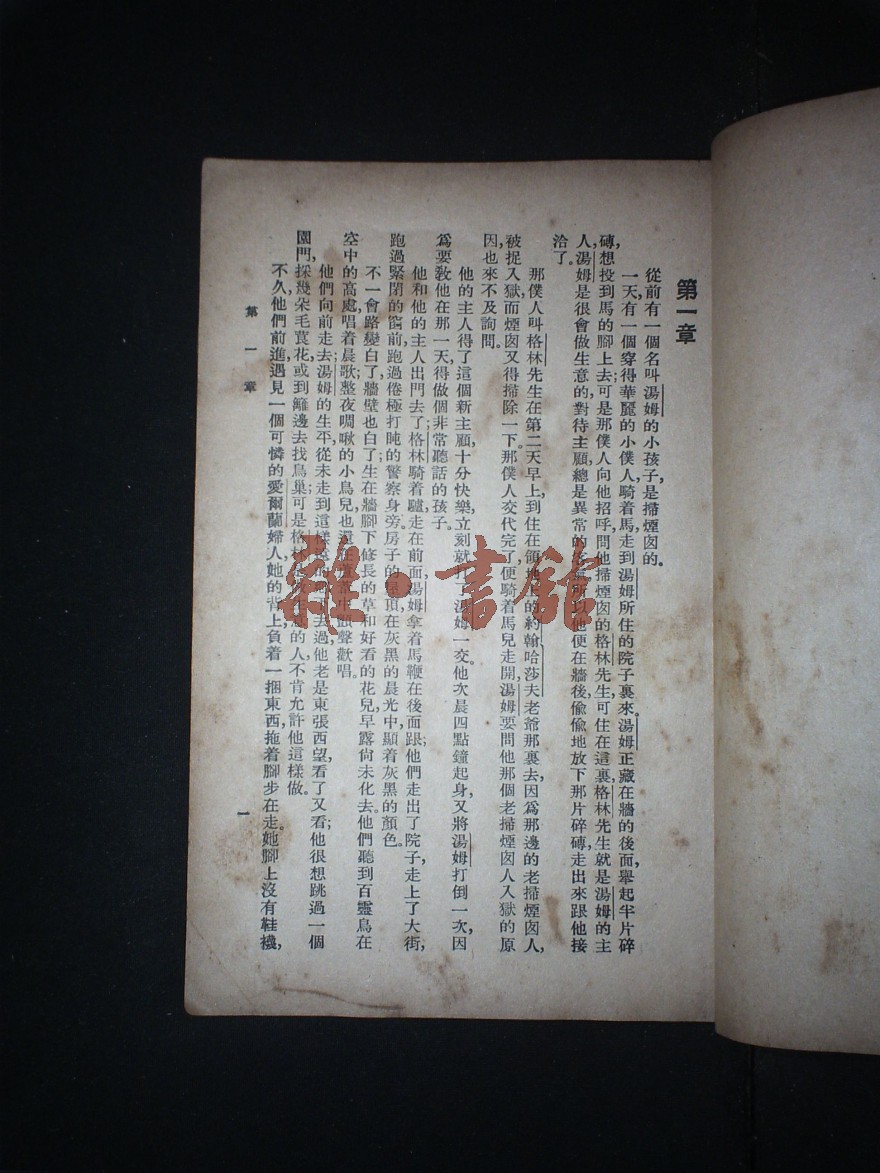 第一章
從前有一個名叫湯姆的小孩子,是掃煙囪的。
一天,有一個穿得華麗的小僕人,騎着馬,走到湯姆所住的院子裏來。湯姆正藏在牆的後面,舉起半片碎
磚,想投到馬的腳上去;可是那僕人向他招呼,問他掃煙囪的格林先生可住在這裏。格林先生就是湯姆的主
人,湯姆是很會做生意的,對待主顧,總是異常的客氣,所以他便在牆後,偷偷地放下那片碎磚,走出來跟他接
洽了。
那僕人叫格林先生在第二天早上,到住在領地上的約翰哈莎夫老爺那裏去,因爲那邊的老掃煙囪人,
被捉入獄,而煙囪又得掃除一下。那僕人交代完了,便騎着馬兒走開,湯姆要問他那個老掃煙囪人入獄的原
因,也來不及詢問。
他的主人得了這個新主顧,十分快樂,立刻就打了湯姆一交。他次晨四點鐘起身,又將湯姆打倒一次,因
爲要教他在那一天,得做個非常聽話的孩子。
他和他的主人出門去了;格林騎着驢,走在前面,湯姆拿着馬鞭在後面跟;他們走出了院子,走上了大街,
跑過緊閉的窗前,跑過倦極打盹的警察身旁。房子的屋頂,在灰黑的晨光中,顯着灰黑的顏色。
不一會,路變白了,牆壁也白了;生在牆腳下修長的草和好看的花兒,早露尙未化去。他們聽到百靈鳥在
空中的高處,唱着晨歌;整夜啁啾的小鳥兒,也還在蘆葦中顫聲歡唱。
他們向前走去,湯姆的生平,從未走到這樣遠的鄉下去過,他老是東張西望,看了又看;他很想跳過一個
園門,採幾朵毛莨花,或到籬邊去找鳥巢;可是格林的人不肯允許他這樣做。
不久,他們前進,遇見一個可憐的愛爾蘭婦人,她的背上負着一捆東西,拖着腳步在走。她腳上沒有鞋襪,
第一章
一
雜·書館